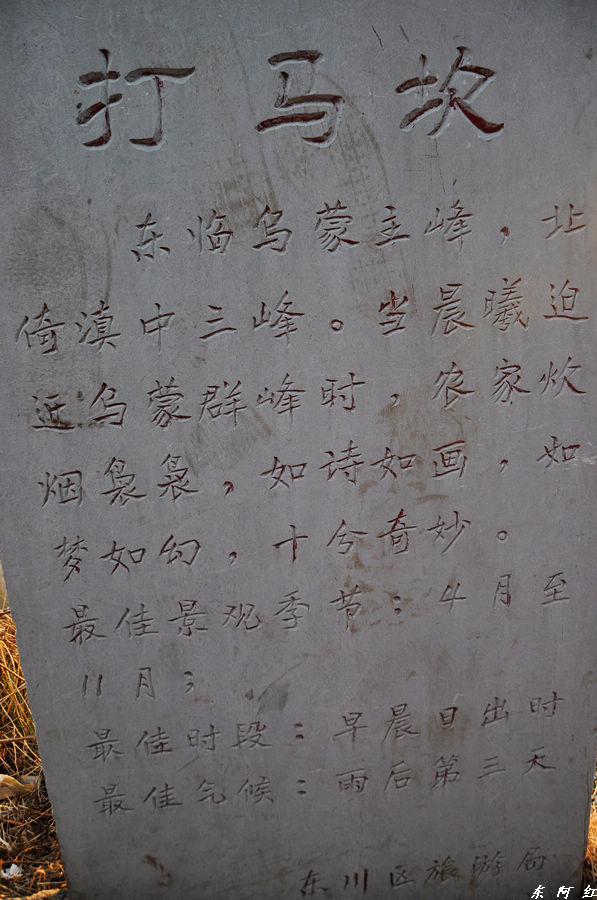 打马坎
东临乌蒙主峰，北
倚滇中三峰。当晨曦迫
近乌蒙群峰时，农家炊
烟袅袅，如诗如画，如
梦如幻，十兮奇妙。
最佳景观季节：4月至
11月；
最佳时段：早晨日出时
最佳气候：雨后第三天
东川区旅游局
东阿红